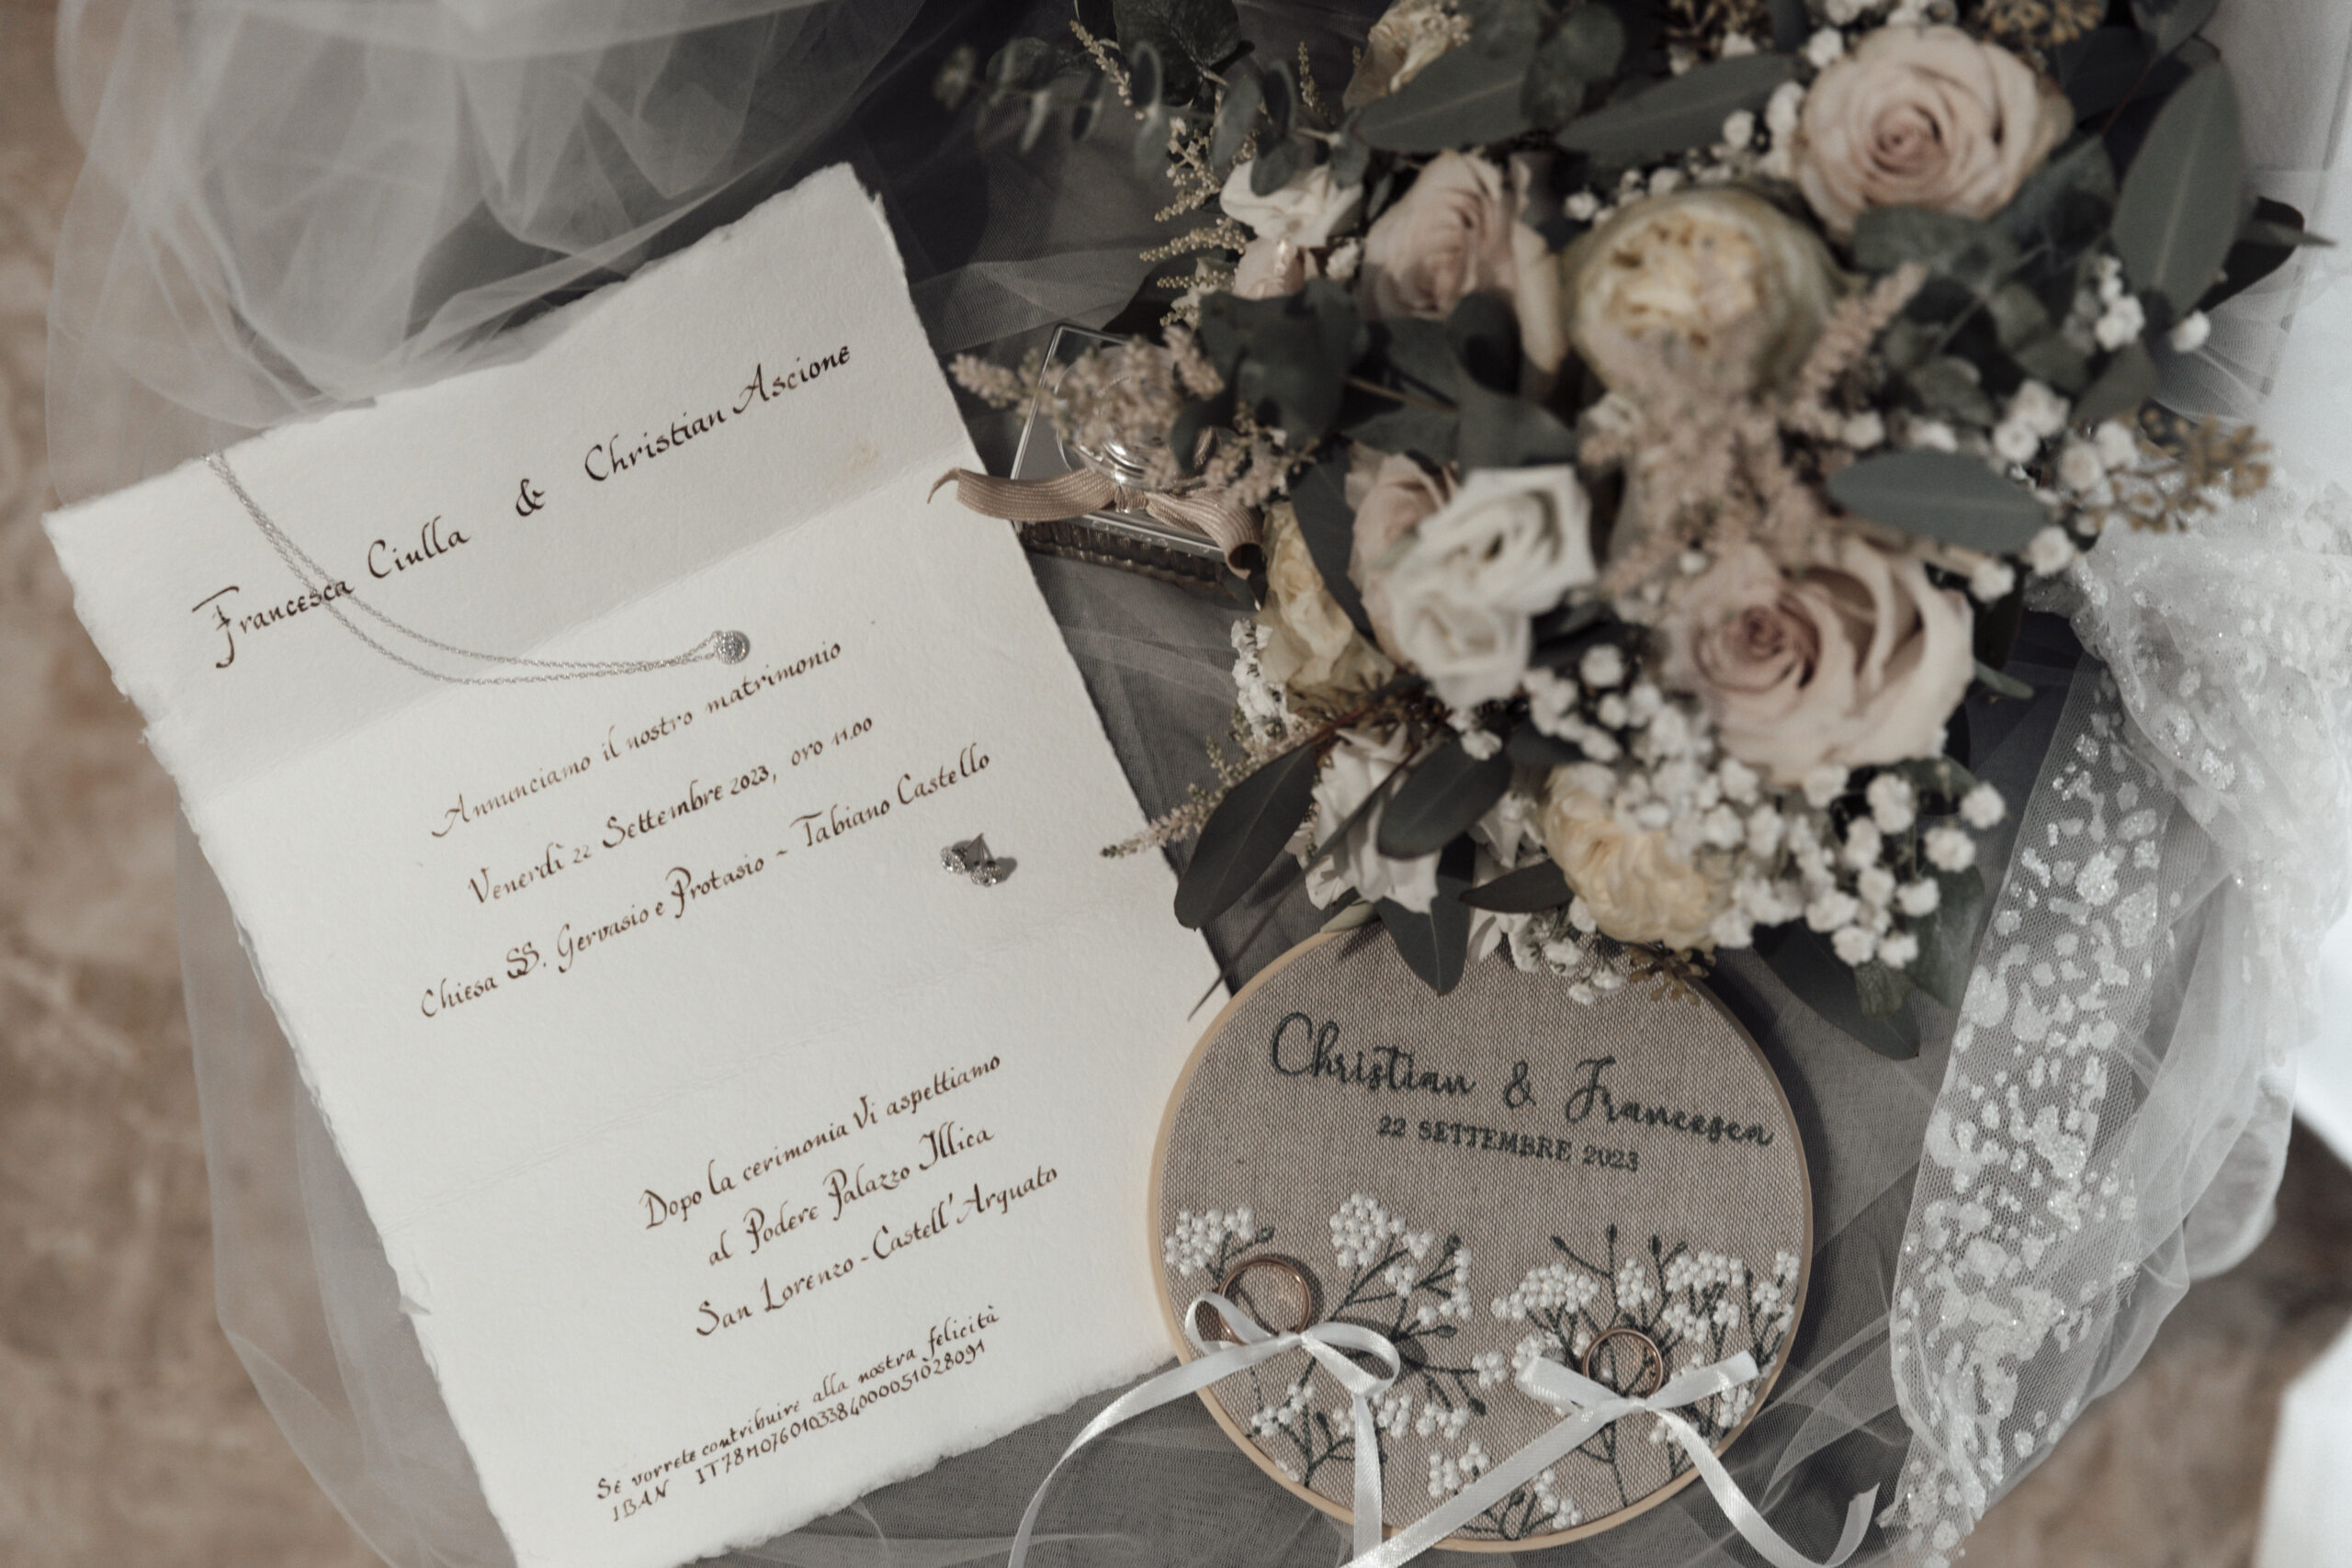 Francesca Ciulla & Christian Ascione
Annunciamo il nostro matrimonio
Venerdì 22 Settembre 2023, ore 11.00
Chiesa SS. Gervasio e Protasio ~ Tabiano Castello
Dopo la cerimonia Vi aspettiamo
al Podere Palazzo Illica
San Lorenzo - Castell'Arquato
Se vorrete contribuire alla nostra felicità
IBAN IT78M0760103384000051028091
Christian & Francesca
22 SETTEMBRE 2023